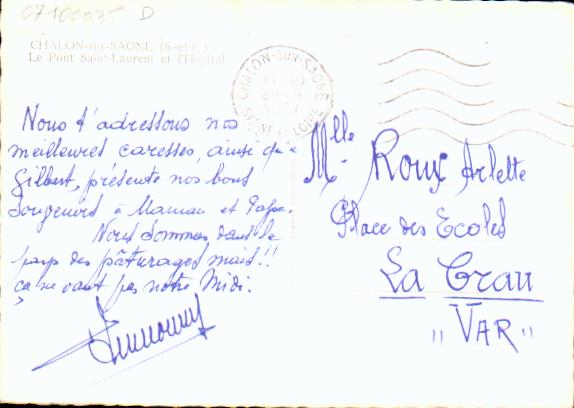 07100035 D
CHALON-sur-SAONE (S.-et-L.)
Le Pont Saint-Laurent et l'Hôpital
CHALON-SUR-SAONE
SAONE ET LOIRE
Nous t'adressons nos
meilleures caresses, ainsi qu'a
Gilbert, présente nos bons
à Maman et Papa.
Nous sommes dans le
pays des pâturages mais!!
ça ne vaut pas notre Midi.
Mlle Roux Arlette
Place des Ecoles
La Crau
"VAR"